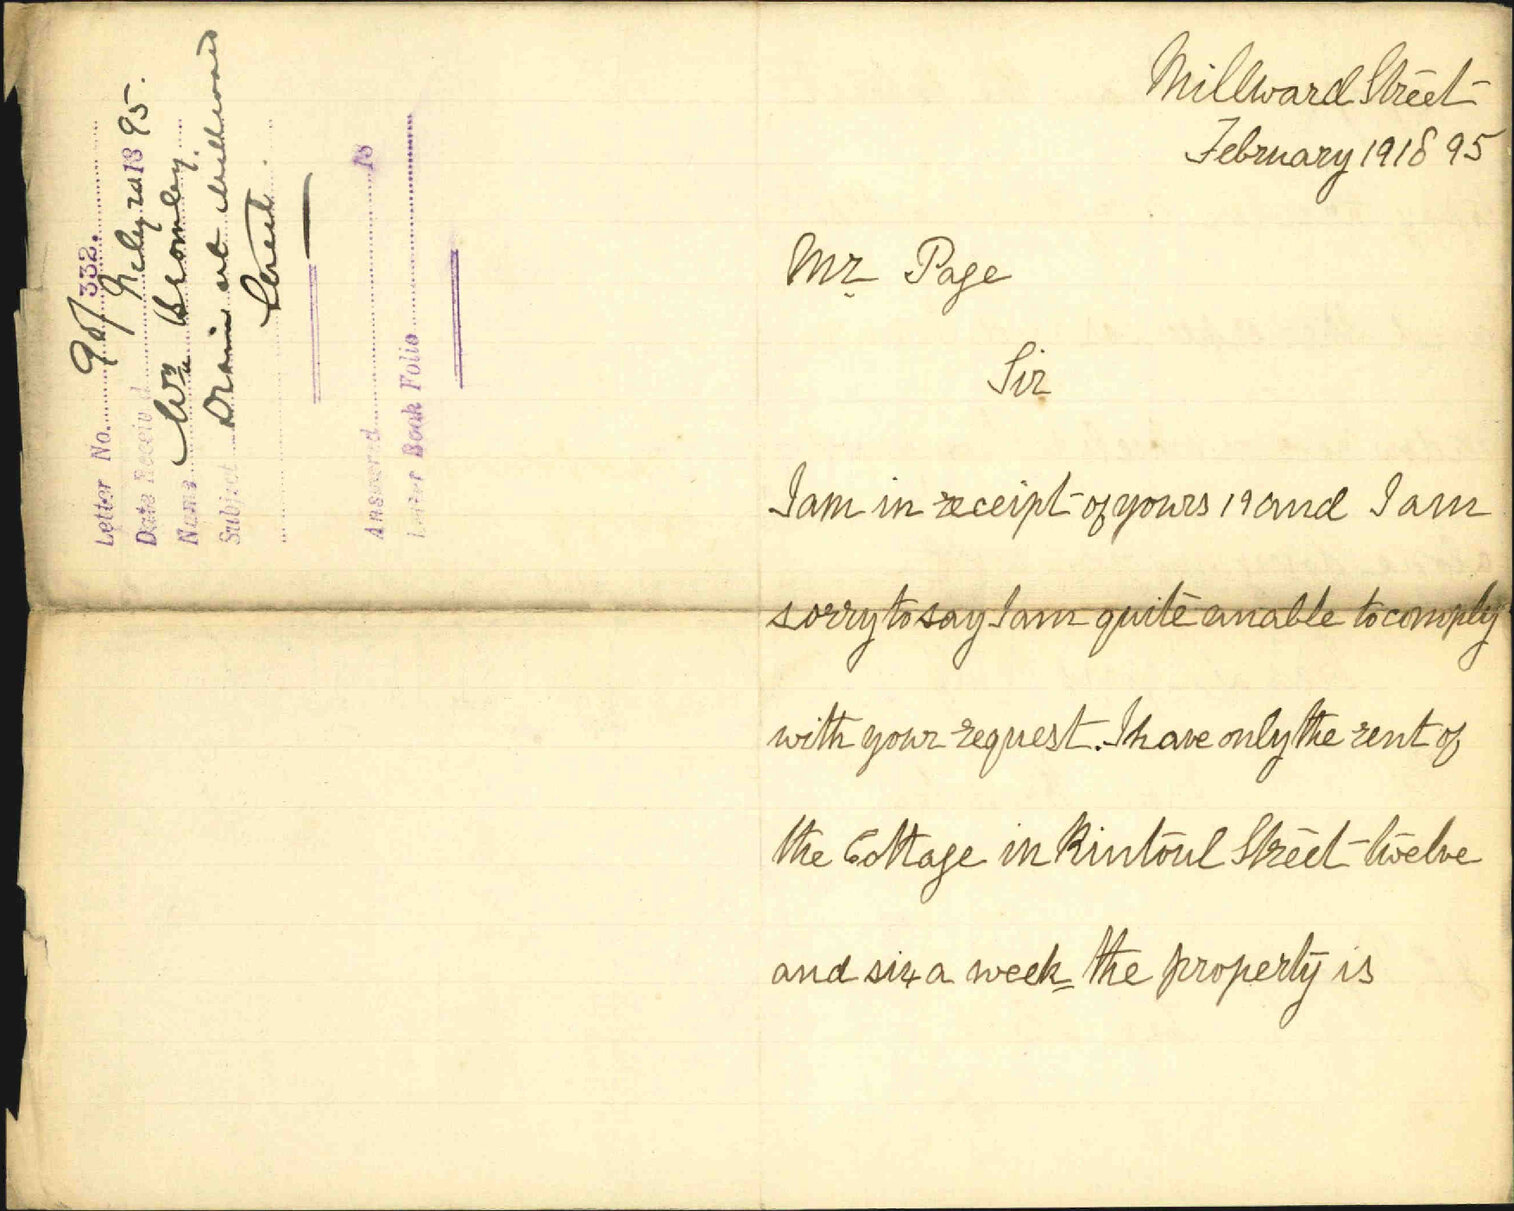 Millward Street
February 19 18 95
Mr Page
Sir
I am in receipt of yours 19 and I am
sorry to say I am quite unable to comply
with your request. I have only the rent of
the Cottage in Rintoul Street twelve
and six a week = the property is
Letter No. 332.
Date Received 18 95.
Name Wm Bromley.
Subject Drain at Millward
Street.
Answered 18
Letter Book Folio